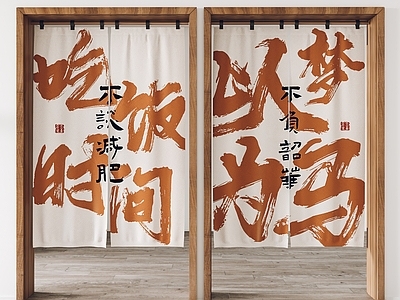 吃饭
时间
不談減肥
以梦
为马
不負韶華